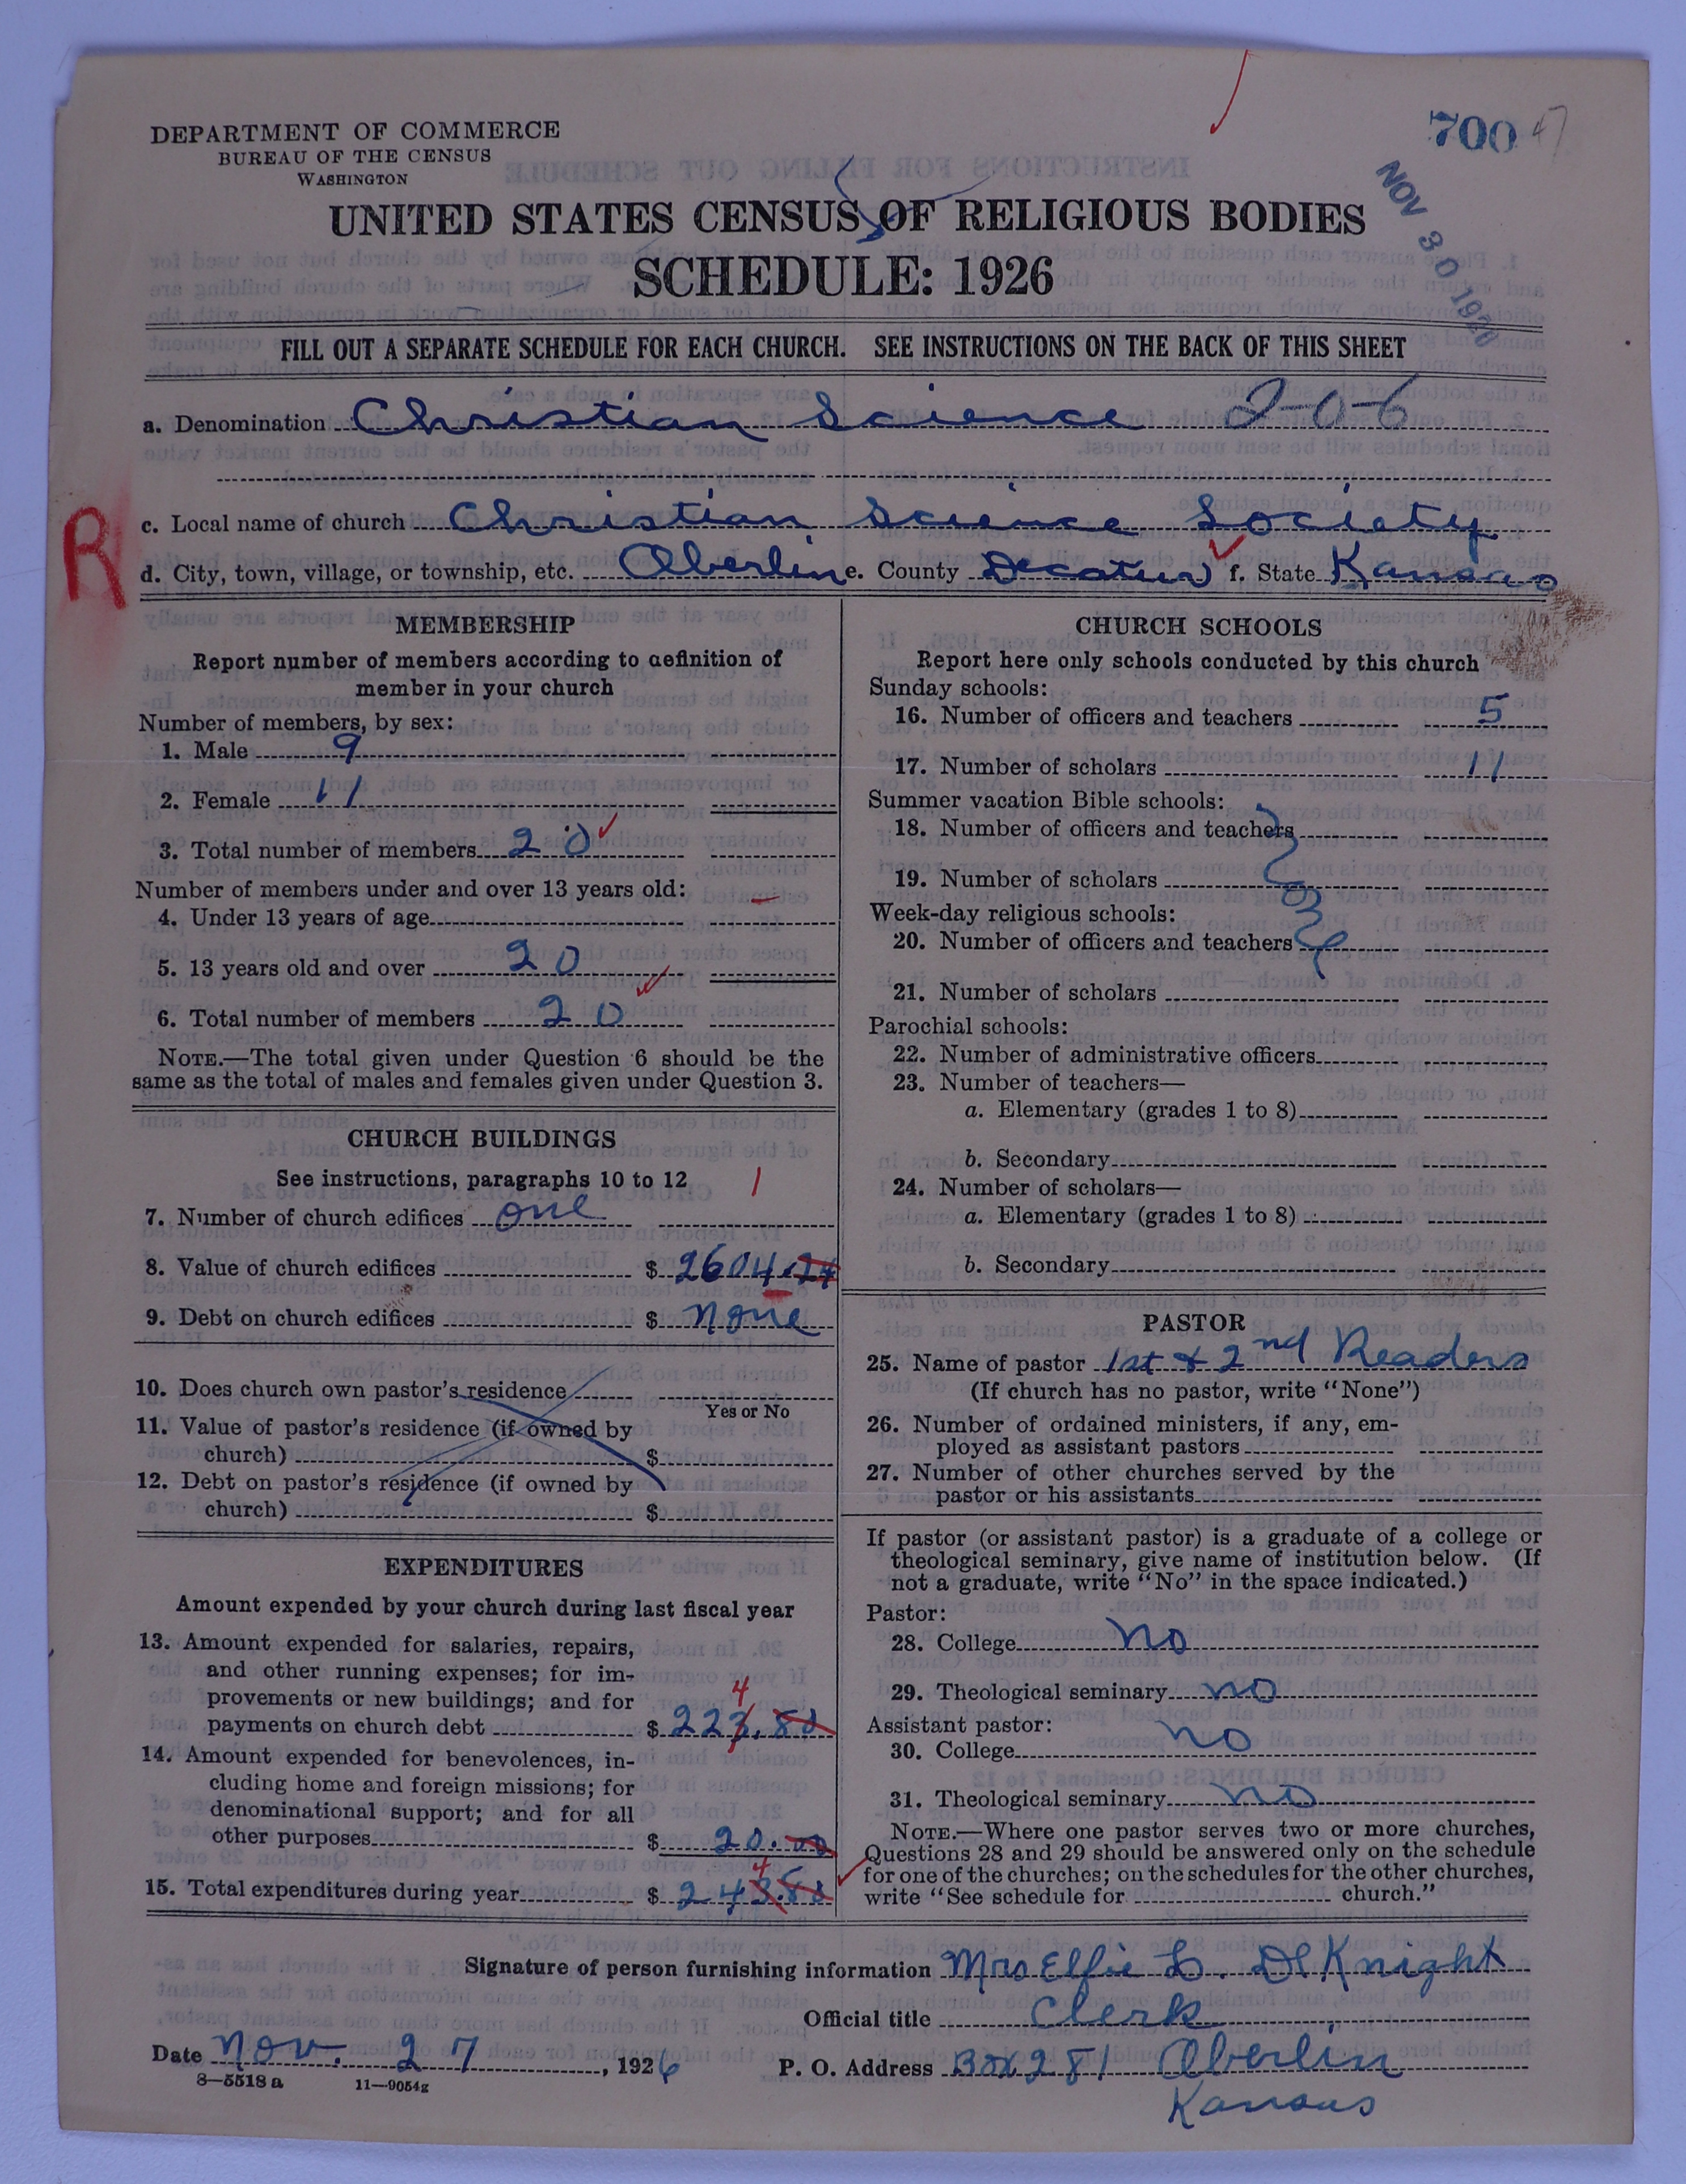 DEPARTMENT OF COMMERCE
BUREAU OF THE CENSUS
WASHINGTON
700 47
NOV 30 1926
UNITED STATES CENSUS OF RELIGIOUS BODIES
SCHEDULE: 1926
FILL OUT A SEPARATE SCHEDULE FOR EACH CHURCH. SEE INSTRUCTIONS ON THE BACK OF THIS SHEET
a. Denomination Christian Science 2-0-6
R
c. Local name of church Christian Science Society
d. City, town, village, or township, etc. Oberlin e. County Decatur f. State Kansas
MEMBERSHIP
Report number of members according to definition of
member in your church
Number of members, by sex:
1. Male 9
2. Female 11
3. Total number of members 20
Number of members under and over 13 years old:
4. Under 13 years of age
5. 13 years old and over 20
6. Total number of members 20
NOTE.—The total given under Question 6 should be the
same as the total of males and females given under Question 3.
CHURCH BUILDINGS
See instructions, paragraphs 10 to 12 1
7. Number of church edifices one
8. Value of church edifices $ 2604.
9. Debt on church edifices $ none
10. Does church own pastor's residence
Yes or No
11. Value of pastor's residence (if owned by
church) $
12. Debt on pastor's residence (if owned by
church) $
EXPENDITURES
Amount expended by your church during last fiscal year
13. Amount expended for salaries, repairs,
and other running expenses; for im-
provements or new buildings; and for
4
payments on church debt $ 223.80
14. Amount expended for benevolences, in-
cluding home and foreign missions; for
denominational support; and for all
other purposes $ 20.00
4
15. Total expenditures during year $ 243.80
CHURCH SCHOOLS
Report here only schools conducted by this church
Sunday schools:
16. Number of officers and teachers 5
17. Number of scholars 11
Summer vacation Bible schools:
18. Number of officers and teachers
19. Number of scholars
Week-day religious schools:
20. Number of officers and teachers
21. Number of scholars
Parochial schools:
22. Number of administrative officers
23. Number of teachers—
a. Elementary (grades 1 to 8)
b. Secondary
24. Number of scholars—
a. Elementary (grades 1 to 8)
b. Secondary
PASTOR
25. Name of pastor 1st & 2nd Readers
(If church has no pastor, write "None")
26. Number of ordained ministers, if any, em-
ployed as assistant pastors
27. Number of other churches served by the
pastor or his assistants
If pastor (or assistant pastor) is a graduate of a college or
theological seminary, give name of institution below. (If
not a graduate, write "No" in the space indicated.)
Pastor:
28. College no
29. Theological seminary no
Assistant pastor:
30. College no
31. Theological seminary no
NOTE.—Where one pastor serves two or more churches,
Questions 28 and 29 should be answered only on the schedule
for one of the churches; on the schedules for the other churches,
write "See schedule for church."
Signature of person furnishing information Mrs Effie L. DeKnight
Official title Clerk
Date Nov. 27, 1926 P. O. Address Box 281 Oberlin
Kansas
8—5518 a 11—9054g